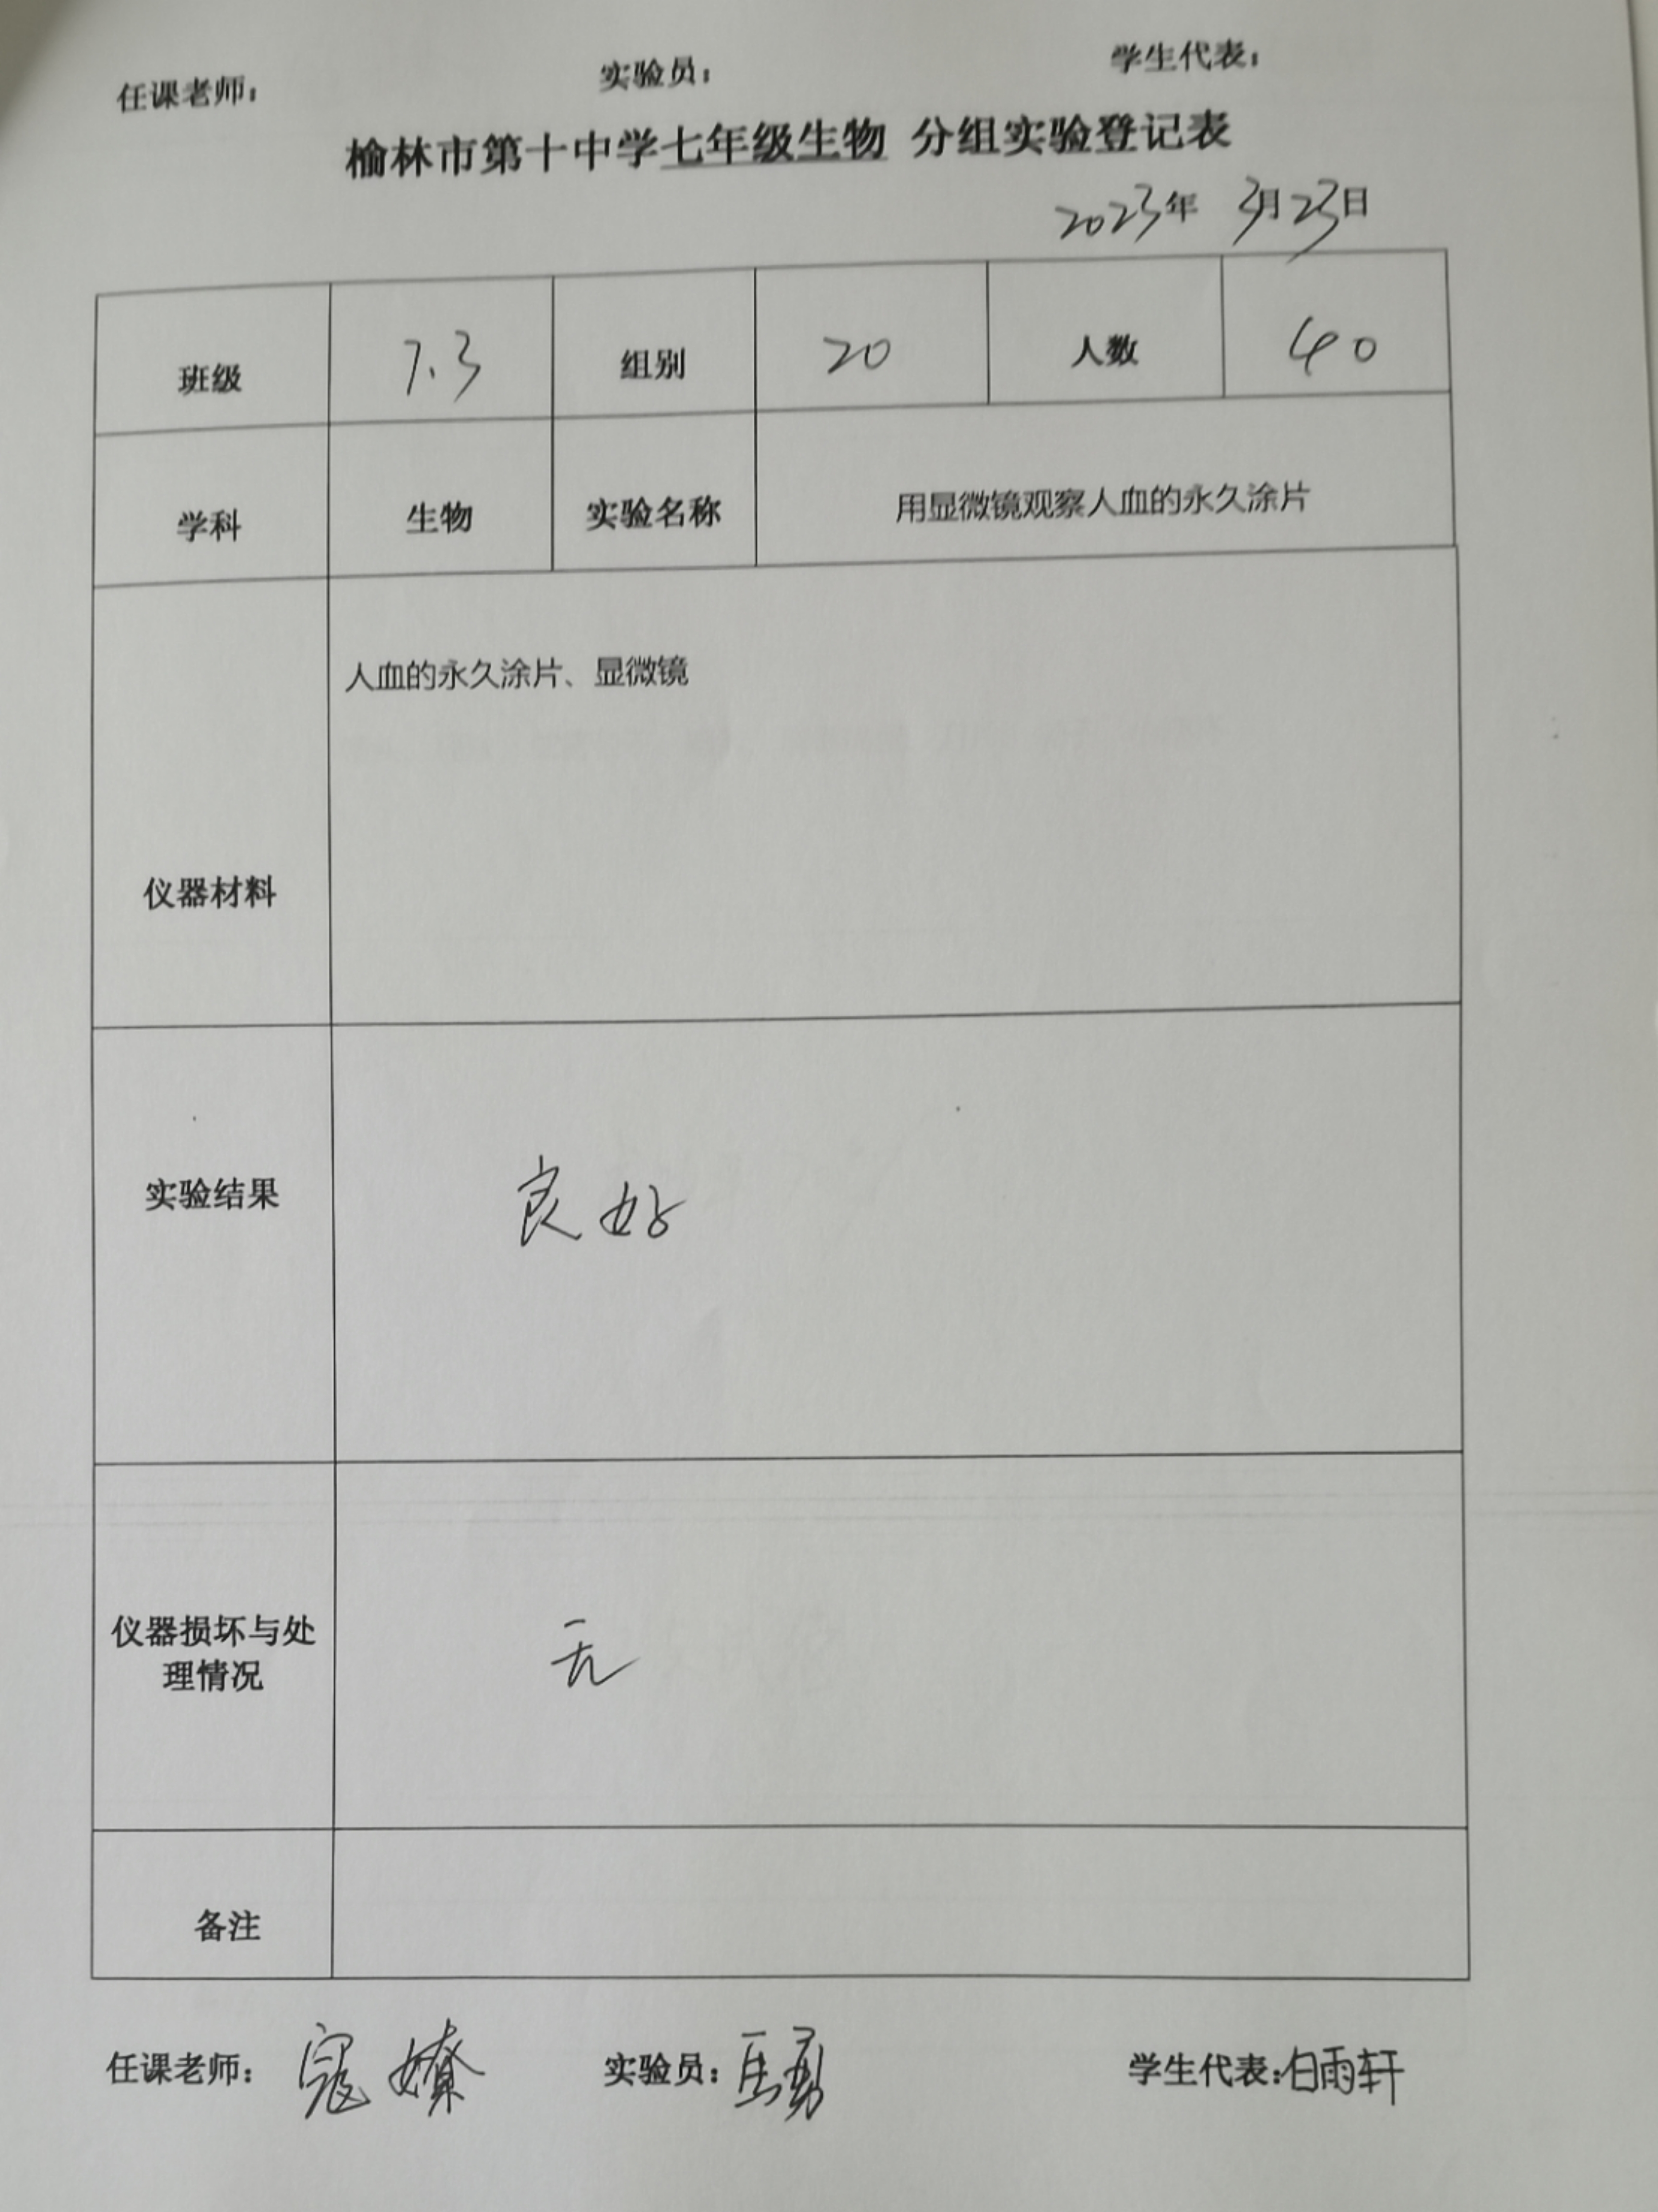 任课老师： 实验员： 学生代表：
榆林市第十中学七年级生物 分组实验登记表
2023年 3月23日
班级 7.3 组别 20 人数 40
学科 生物 实验名称 用显微镜观察人血的永久涂片
人血的永久涂片、显微镜
仪器材料
实验结果 良好
仪器损坏与处
理情况 无
备注
任课老师： 寇嫽 实验员： 学生代表：白雨轩